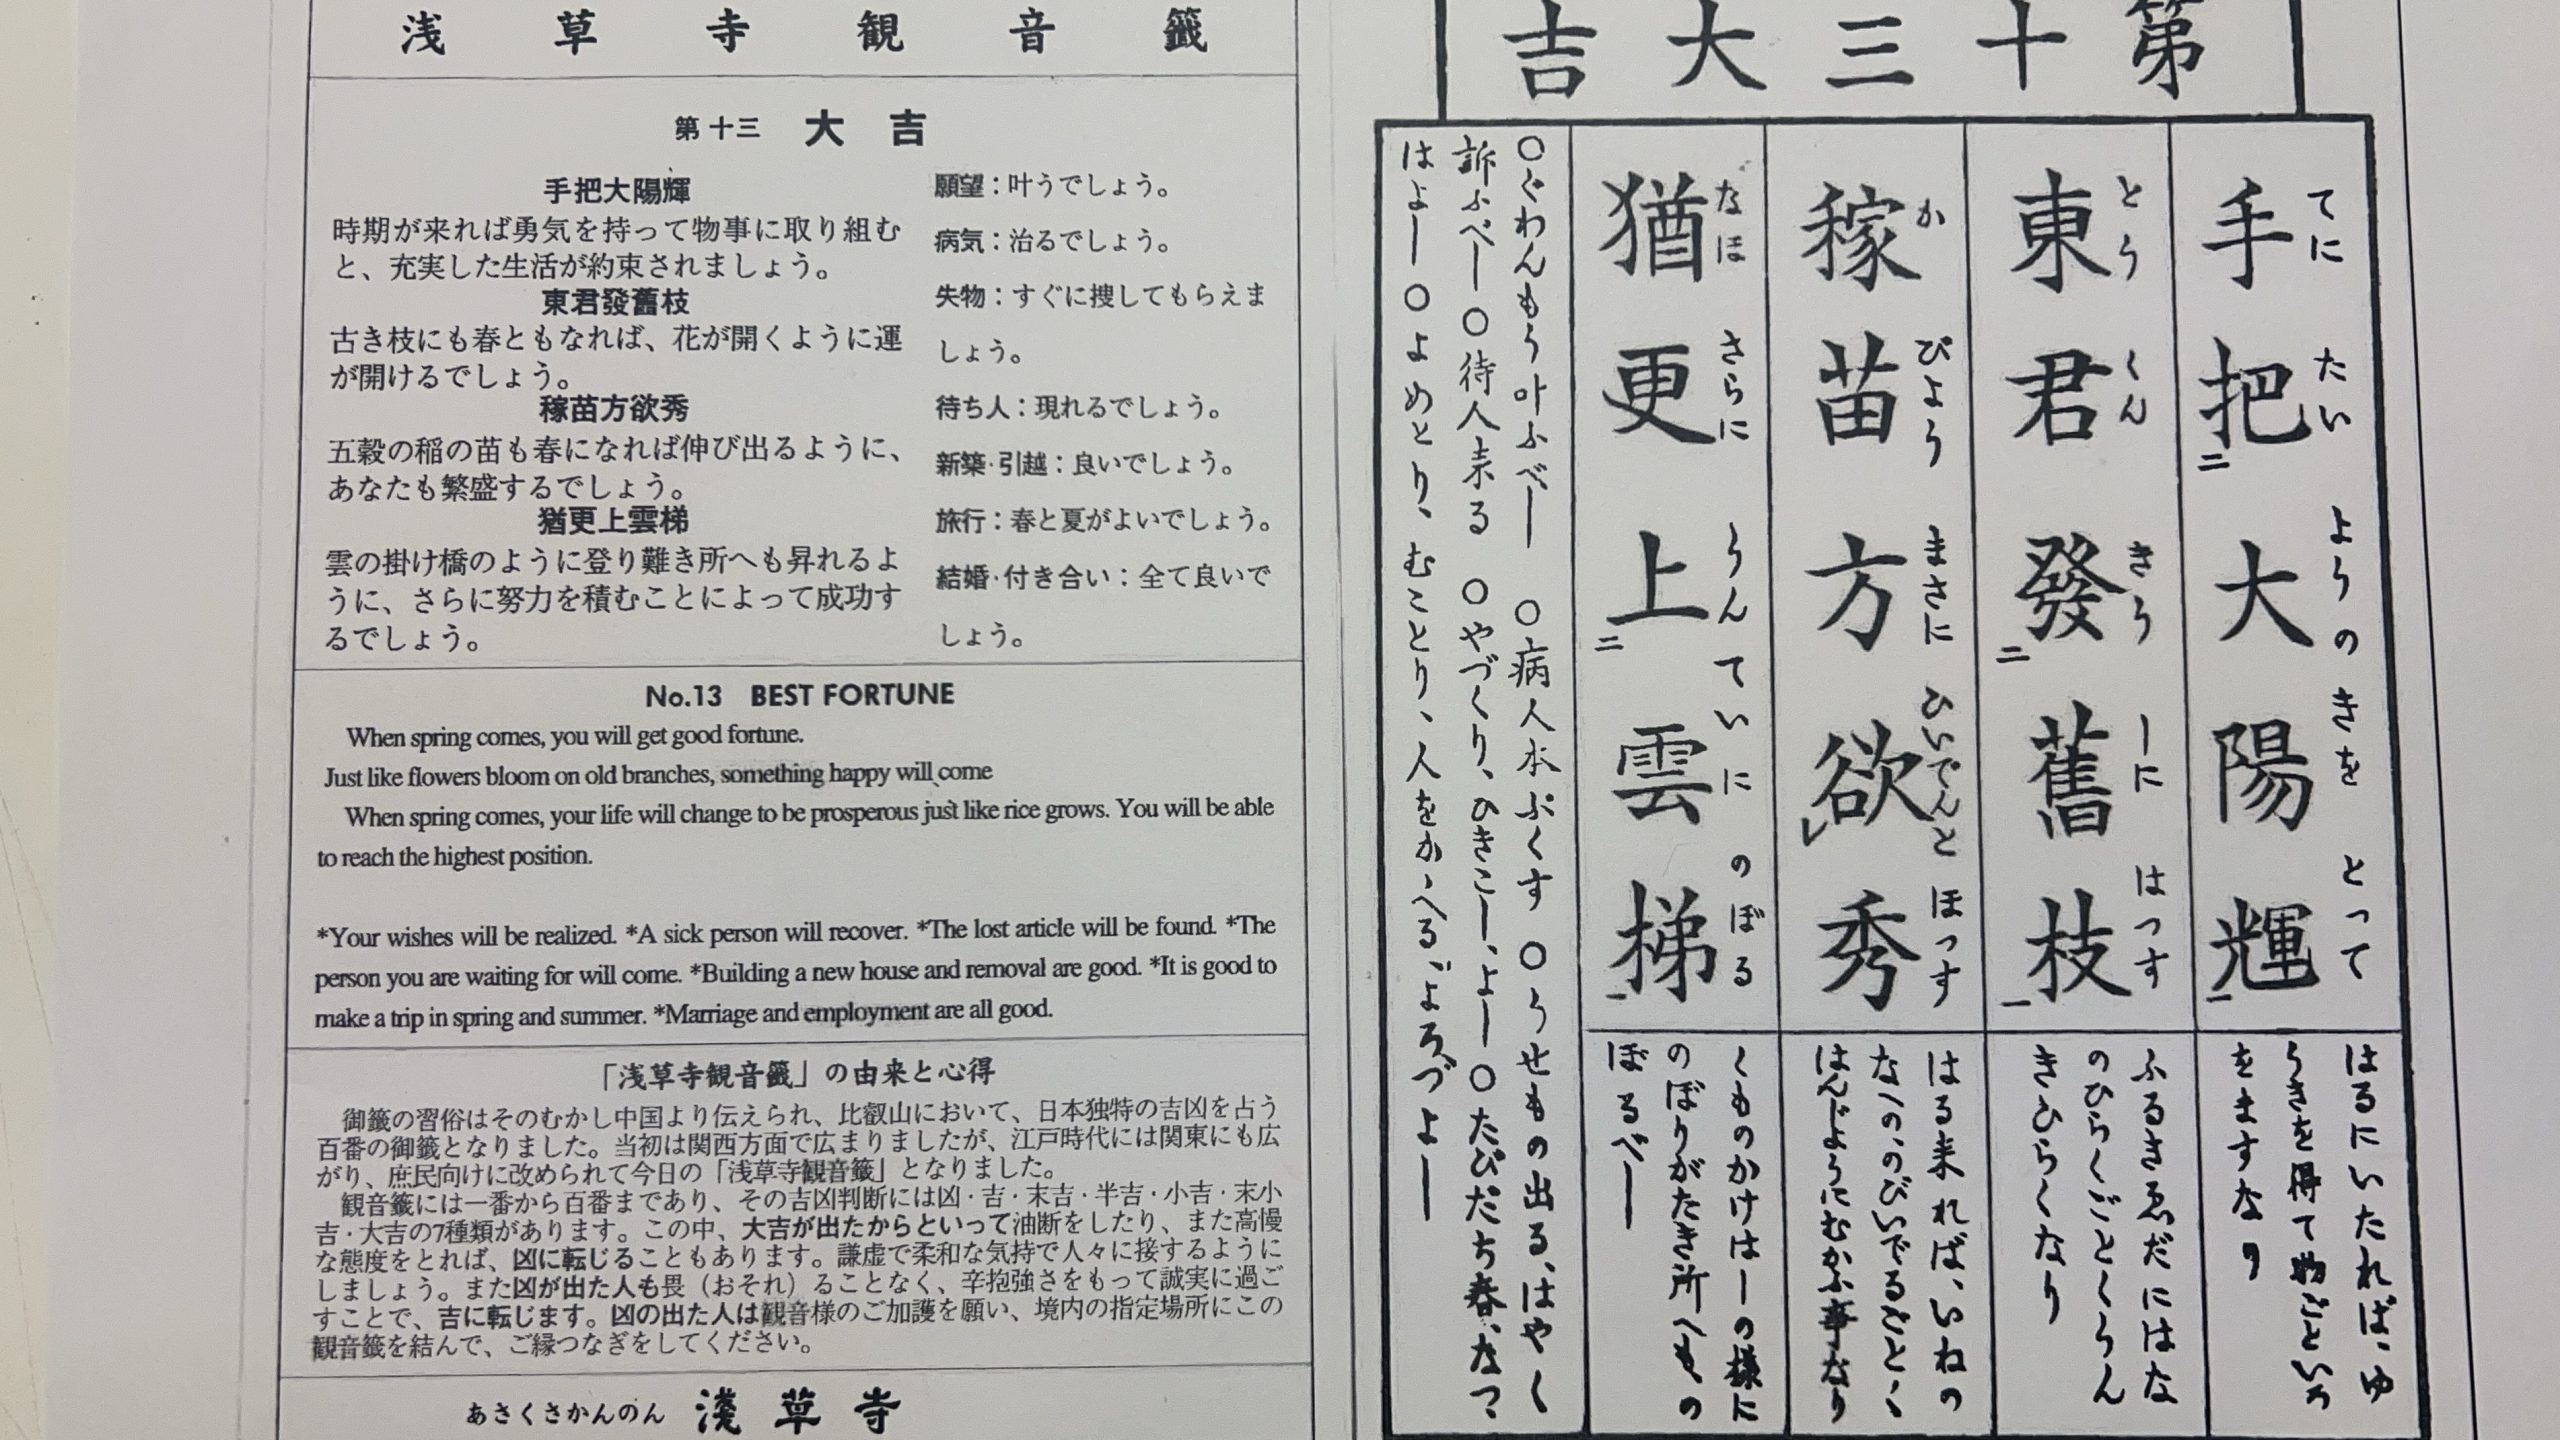 浅草寺観音籤
第十三 大吉
手把大陽輝
時期が来れば勇気を持って物事に取り組む
と、充実した生活が約束されましょう。
東君發舊枝
古き枝にも春ともなれば、花が開くように運
が開けるでしょう。
稼苗方欲秀
五穀の稲の苗も春になれば伸び出るように、
あなたも繁盛するでしょう。
猶更上雲梯
雲の掛け橋のように登り難き所へも昇れるよ
うに、さらに努力を積むことによって成功す
るでしょう。
願望：叶うでしょう。
病気：治るでしょう。
失物：すぐに捜してもらえま
しょう。
待ち人：現れるでしょう。
新築·引越：良いでしょう。
旅行：春と夏がよいでしょう。
結婚·付き合い：全て良いで
しょう。
No.13 BEST FORTUNE
When spring comes, you will get good fortune.
Just like flowers bloom on old branches, something happy will come
When spring comes, your life will change to be prosperous just like rice grows. You will be able
to reach the highest position.
*Your wishes will be realized. *A sick person will recover. *The lost article will be found. *The
person you are waiting for will come. *Building a new house and removal are good. *It is good to
make a trip in spring and summer. *Marriage and employment are all good.
「浅草寺観音籤」の由来と心得
御籤の習俗はそのむかし中国より伝えられ、比叡山において、日本独特の吉凶を占う
百番の御籤となりました。当初は関西方面で広まりましたが、江戸時代には関東にも広
がり、庶民向けに改められて今日の「浅草寺観音籤」となりました。
観音籤には一番から百番まであり、その吉凶判断には凶·吉·末吉·半吉·小吉·末小
吉·大吉の7種類があります。この中、大吉が出たからといって油断をしたり、また高慢
な態度をとれば、凶に転じることもあります。謙虚で柔和な気持で人々に接するように
しましょう。また凶が出た人も畏（おそれ）ることなく、辛抱強さをもって誠実に過ご
すことで、吉に転じます。凶の出た人は観音様のご加護を願い、境内の指定場所にこの
観音籤を結んで、ご縁つなぎをしてください。
あさくさかんのん 淺草寺
第十三大吉
手把二大陽輝一
てに たい ようの きを とって
はるにいたれば、ゆ
うきを得て物ごといろ
をますなり
東君發二舊枝一
とう くん きう しに はつす
ふるきゑだにはな
のひらくごとくうん
きひらくなり
稼苗方欲レ秀
か びよう まさに ひいでんと ほつす
はる来れば、いねの
なへの、のびいでるごとく
はんじようにむかふ事なり
猶更上二雲梯一
なほ さらに うんていに のぼる
くものかけはしの様に
のぼりがたき所へも、の
ぼるべし
○ぐわんもう叶ふべし ○病人本ぷくす ○うせもの出る、はやく
訴ふべし ○待人来る ○やづくり、ひきこし、よし ○たびだち春、なつ、
はよし ○よめとり、むことり、人をかゝへる、よろづよし